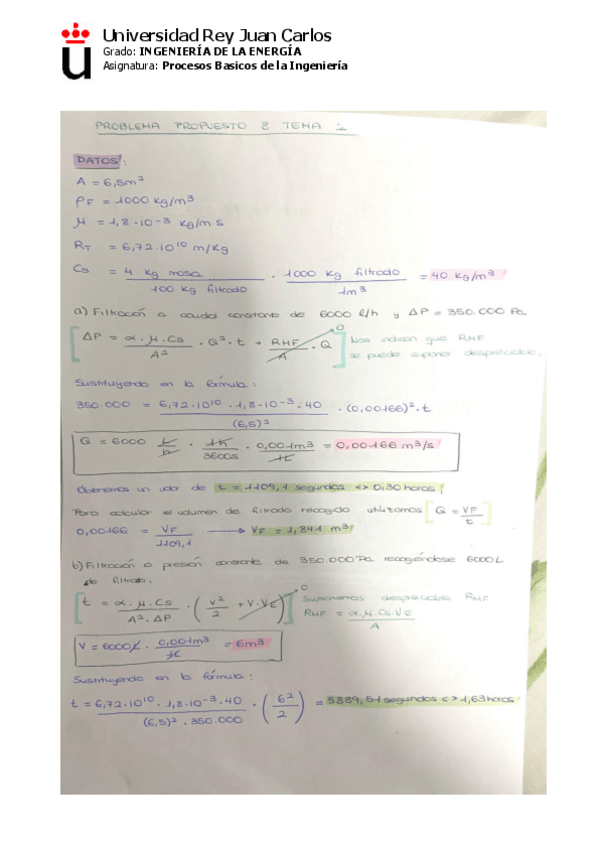 Universidad Rey Juan Carlos
Grado: INGENIERÍA DE LA ENERGÍA
Asignatura: Procesos Basicos de la Ingeniería
PROBLEMA PROPUESTO 8 TEMA 2
DATOS:
A = 6,5m²
ρF = 1000 kg/m³
μ = 1,8·10⁻³ kg/m·s
RT = 6,72·10¹⁰ m/kg
Cs = 4 kg masa / 100 kg filtrado · 1000 kg filtrado / 1m³ = 40 kg/m³
a) Filtración a caudal constante de 6000 l/h y ΔP = 350.000 Pa
[ΔP = α·μ·Cs / A² · Q²·t + RMF / A · Q] 0 Nos indican que RMF se puede suponer despreciable.
Sustituyendo en la fórmula:
350.000 = 6,72·10¹⁰ · 1,8·10⁻³ · 40 / (6,5)² · (0,00166)² · t
Q = 6000 l/h · 1h / 3600s · 0,001m³ / 1l = 0,00166 m³/s
Obtenemos un valor de t = 1109,1 segundos <> 0,30 horas
Para calcular el volumen de filtrado recogido utilizamos [Q = VF / t]
0,00166 = VF / 1109,1 → VF = 1,841 m³
b) Filtración a presión constante de 350.000 Pa recogiéndose 6000L
de filtrado.
[t = α·μ·Cs / A²·ΔP · (V² / 2 + V·VE)] 0 Suponemos despreciable RMF
RMF = α·μ·Cs·VE / A
V = 6000l · 0,001m³ / 1l = 6m³
Sustituyendo en la fórmula:
t = 6,72·10¹⁰ · 1,8·10⁻³ · 40 / (6,5)² · 350.000 · (6² / 2) = 5889,51 segundos <> 1,63 horas